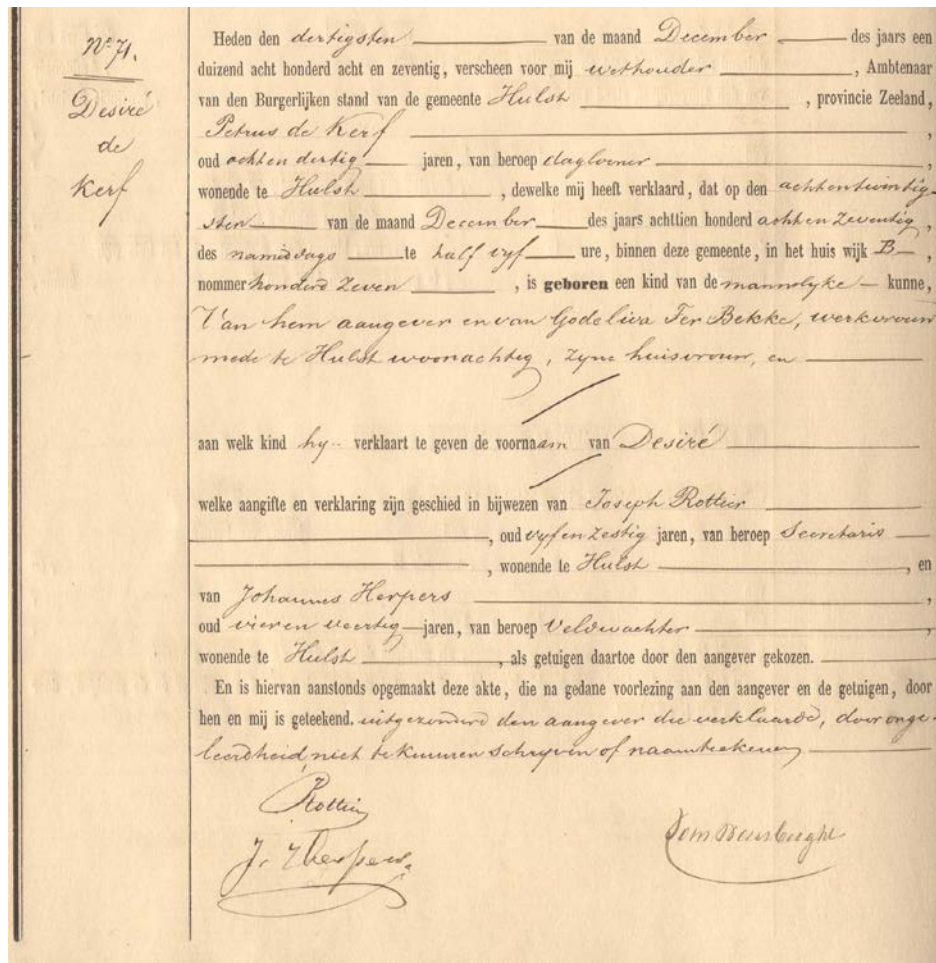 No 71.
Desiré
de
Kerf
Heden den dertigsten van de maand December des jaars een
duizend acht honderd acht en zeventig, verscheen voor mij wethouder, Ambtenaar
van den Burgerlijken stand van de gemeente Hulst, provincie Zeeland,
Petrus de Kerf,
oud acht en dertig jaren, van beroep daglooner,
wonende te Hulst, dewelke mij heeft verklaard, dat op den achtentwintig-
sten van de maand December des jaars achttien honderd acht en zeventig,
des namiddags te half vyf ure, binnen deze gemeente, in het huis wijk B,
nommer honderd zeven, is geboren een kind van de mannelyke kunne,
Van hem aangever en van Godeliva Ter Bekke, werkvrouw
mede te Hulst woonachteg, zyne huisvrouw, en
aan welk kind hy verklaart te geven de voornaam van Desiré
welke aangifte en verklaring zijn geschied in bijwezen van Joseph Rottier
, oud vyf en zestig jaren, van beroep Secretaris
, wonende te Hulst, en
van Johannes Herpers,
oud vier en veertig jaren, van beroep Veldwachter,
wonende te Hulst, als getuigen daartoe door den aangever gekozen.
En is hiervan aanstonds opgemaakt deze akte, die na gedane voorlezing aan den aangever en de getuigen, door
hen en mij is geteekend. uitgezonderd den aangever die verklaarde, door onge-
leerdheid, niet te kunnen schryven of naamteekenen
Rottier
J. Herpers